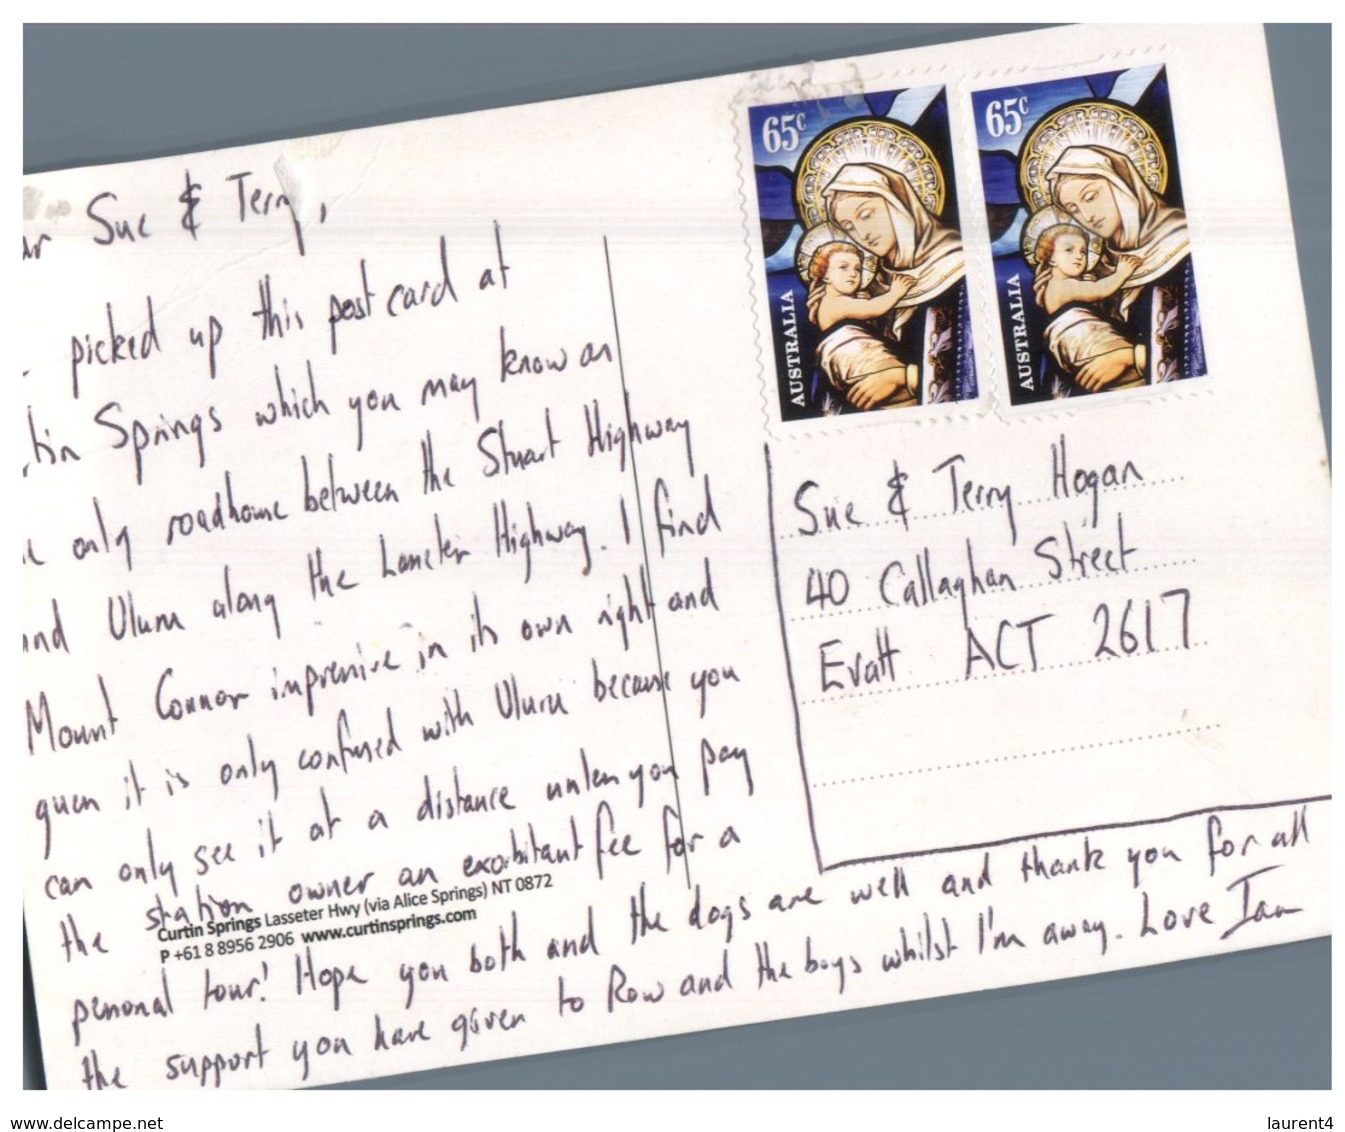 Sue & Terry,
picked up this postcard at
Springs which you may know as
only roadhouse between the Stuart Highway
and Uluru along the Lasseter Highway. I find
Mount Connor impressive in its own right and
guess it is only confused with Uluru because you
can only see it at a distance unless you pay
the station owner an exorbitant fee for a
personal tour! Hope you both and the dogs are well and thank you for all
the support you have given to Row and the boys whilst I'm away. Love Ian
Curtin Springs Lasseter Hwy (via Alice Springs) NT 0872
P +61 8 8956 2906 www.curtinsprings.com
65c
AUSTRALIA
65c
AUSTRALIA
Sue & Terry Hogan
40 Callaghan Street
Evatt ACT 2617
www.delcampe.net
laurent4